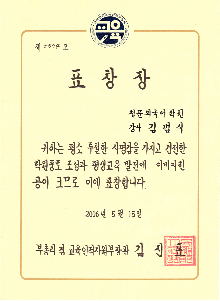 표창장
청운외국어학원
강사 김경식
귀하는 평소 투철한 사명감을 가지고 건전한
학원풍토 조성과 평생교육 발전에 이바지한
공이 크므로 이에 표창합니다.
2006년 5월 15일
부총리 겸 교육인적자원부장관 김진표